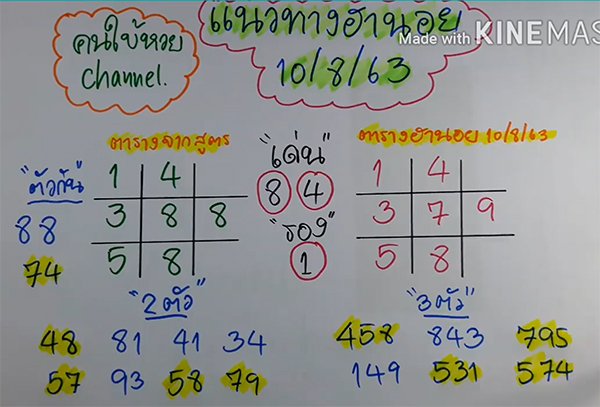 คนใบ้หวย
channel.
แนวทางฮานอย
10/8/63
Made with KINEMAS
ตารางจากสูตร
"เด่น"
ตารางฮานอย 10/8/63
"ตัวกัน"
88
74
1 4
3 8 8
5 8
8 4
"รอง"
1
1 4
3 7 9
5 8
"2 ตัว"
48 81 41 34
57 93 58 79
"3 ตัว"
458 843 795
149 531 574